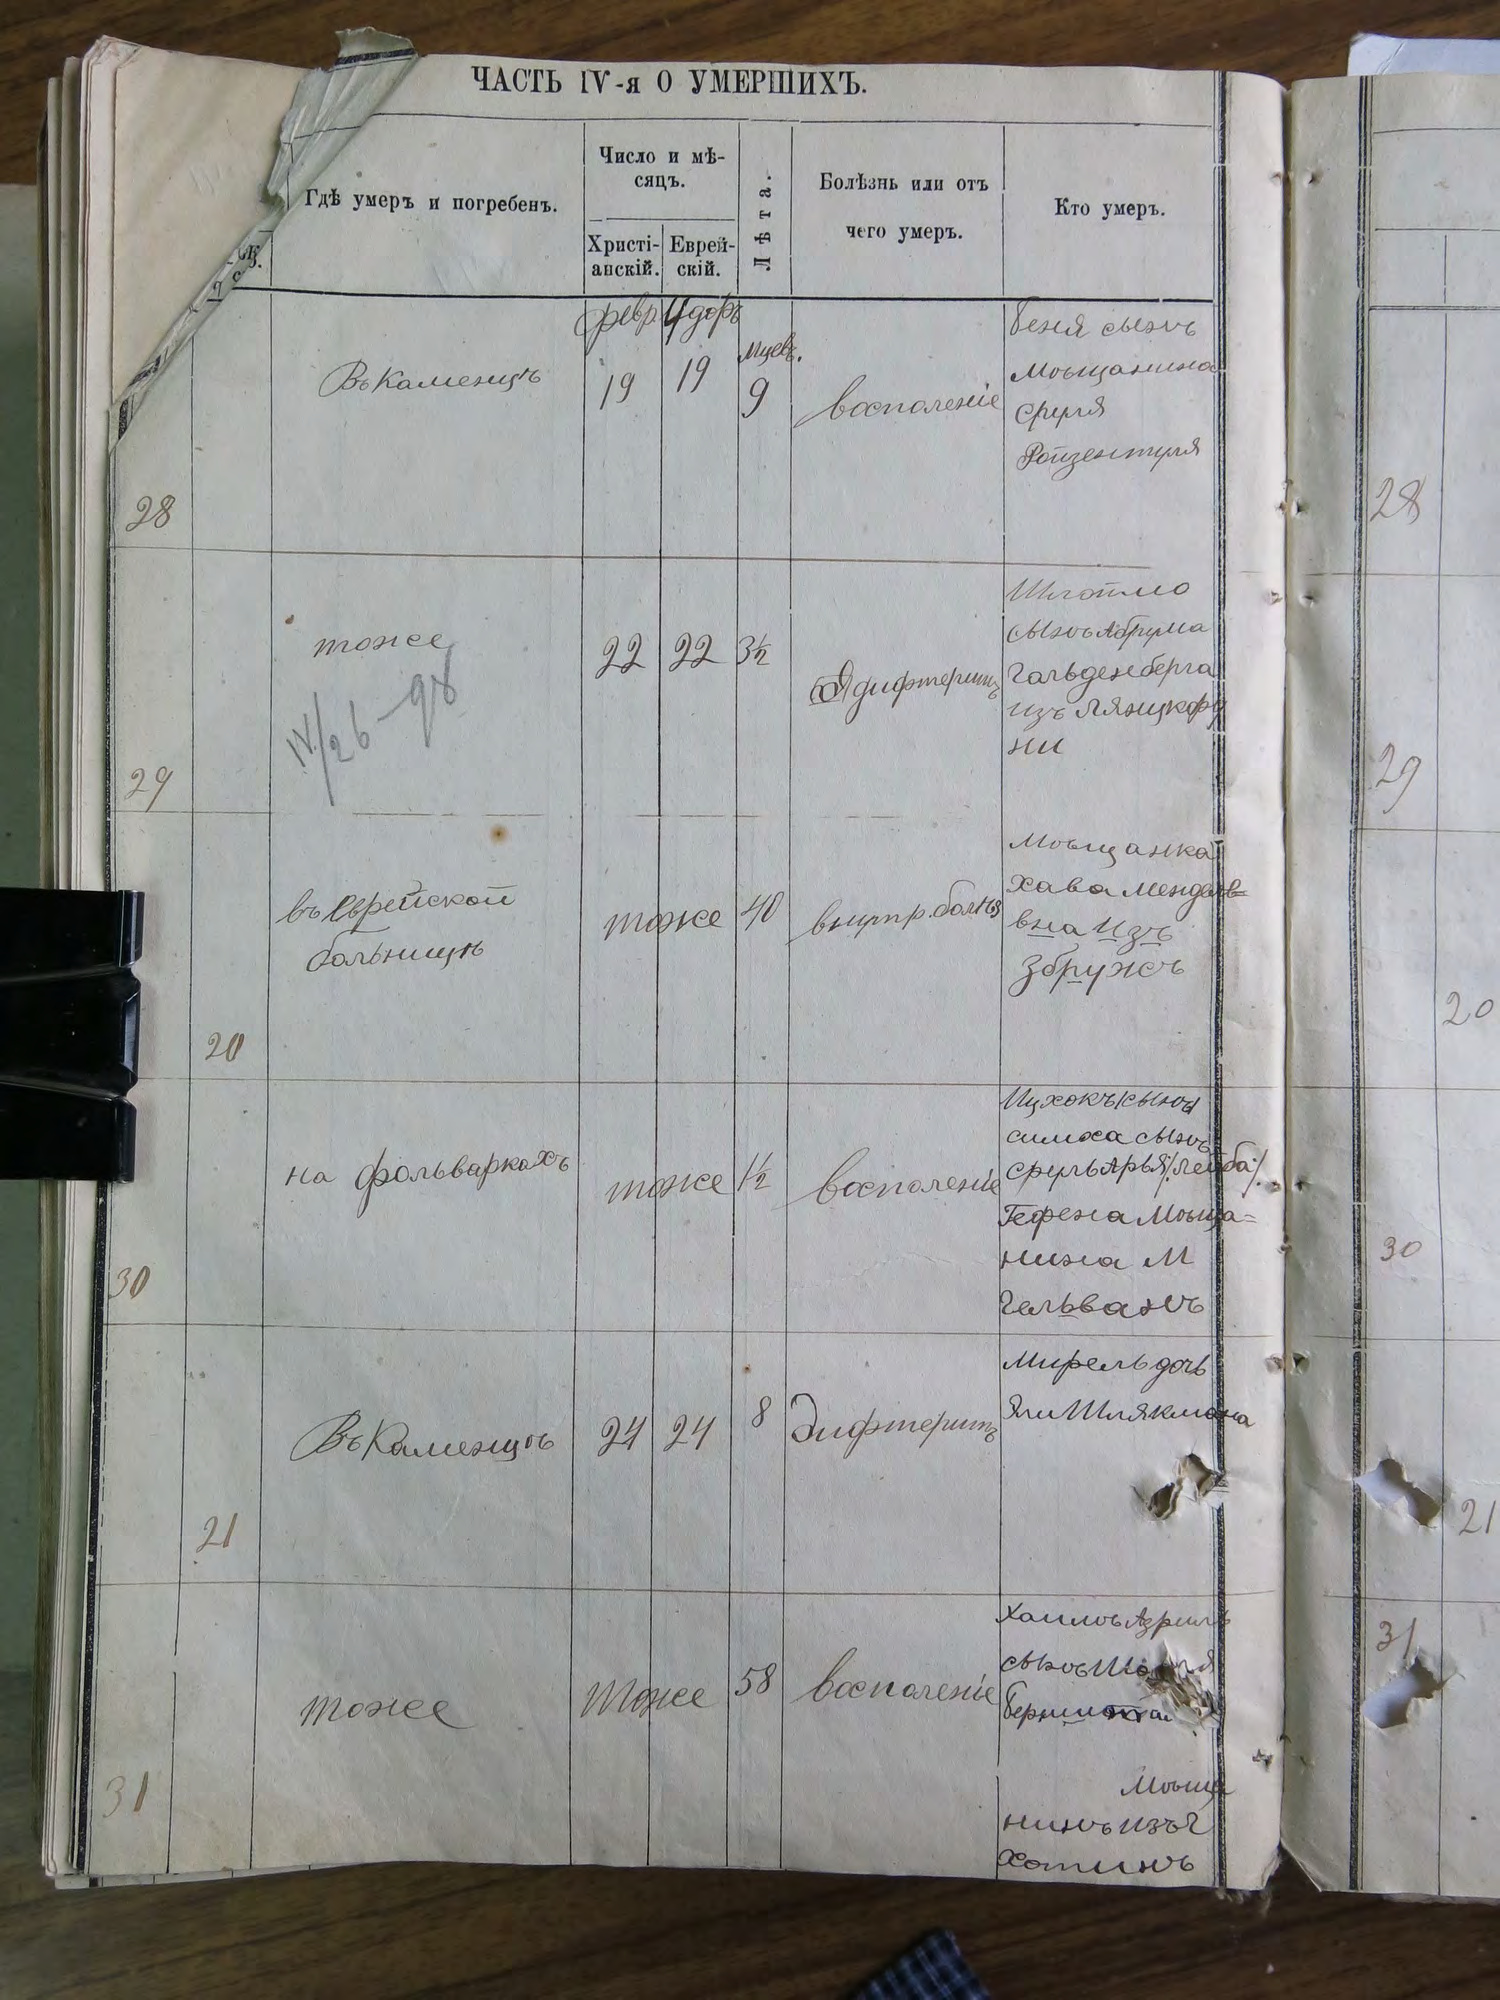 ЧАСТЬ IV-я О УМЕРШИХЪ.
Гдѣ умеръ и погребенъ.
Число и мѣ-
сяцъ.
Христі-
анскій.
Еврей-
скій.
Лѣта.
Болѣзнь или отъ
чего умеръ.
Кто умеръ.
28
Въ Каменцѣ
февр
19
19
мцевъ.
9
восполеніе
Беня сынъ
Мѣщанина
Сруля
Ройзентуля
28
29
тоже
IV/26-98
22
22
3½
дифтеритъ
Шлойме
сынъ Абрума
Гольденберга
изъ Лянцкору
ни
29
20
въ Еврейской
больницѣ
тоже
40
Мѣщанка
Хава Менделе=
вна изъ
Збружъ
20
30
на фольваркахъ
тоже
1½
восполеніе
Ицхокъ/сынъ/
симха сынъ
сруль Арья/:лейба:/
Гефена Мѣща=
нина М
Гельванъ
30
21
Въ Каменцѣ
24
24
8
Дифтеритъ
Мирель дочь
Эли Шлякмана
21
31
тоже
Тоже
58
восполеніе
Хаимъ Азриль
сынъ
Мѣща
нинъ изъ г
Хотинъ
31